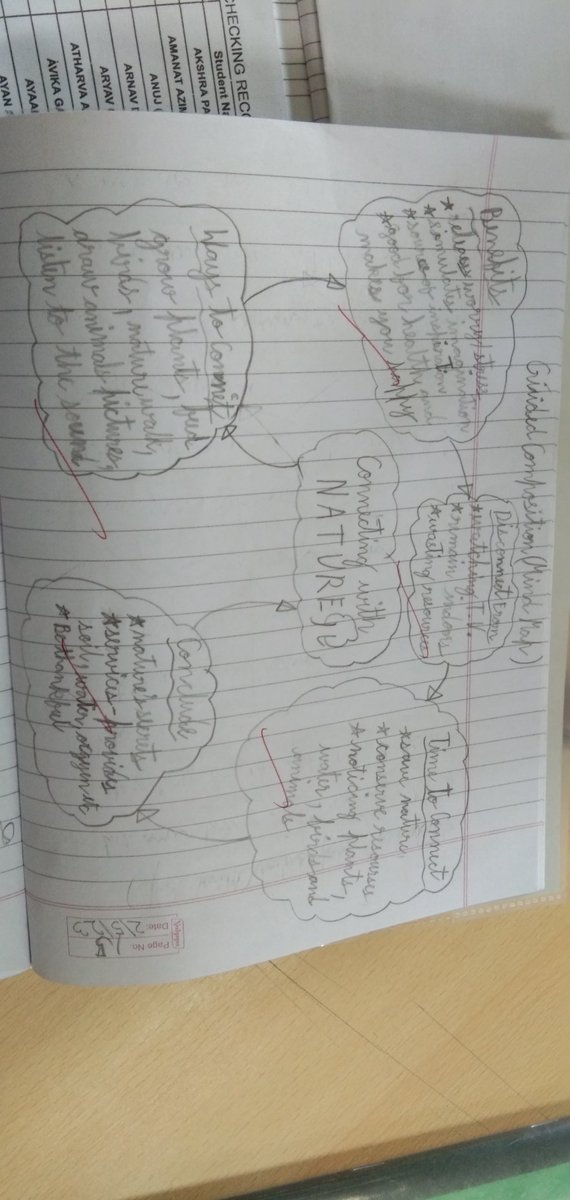 CHECKING RECO
Student Na
AKSHRA PA
AMANAT AZIM
ANUJ
ARNAV
ARYAV
ATHARVA A
AVIKA GA
AYAA
AYAN
Guided Composition (Mind Map)
Benefits
* release worry/stress
* stimulates imagination
* source of inspiration
* good for health and
makes you happy
Disconnect from
* watching T.V.
* remain indoors
* wasting resources
Time to Connect
* save nature
* conserve resourses
* noticing plants,
water, birds and
animals.
Connecting with
NATURE
Ways to Connect
grow plants, feed
birds, nature walk,
draw animals pictures,
listen to the sound
Conclude
* nature's
* services - provids
soil, water, oxygen etc
* Be thankful
Page No.
Date: